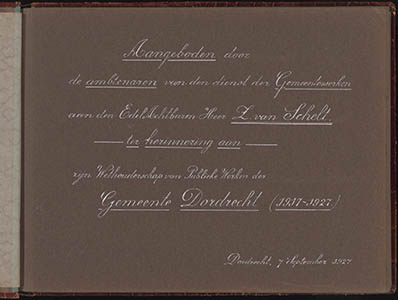 Aangeboden door
de ambtenaren van den dienst der Gemeentewerken
aan den Edelachtbaren Heer L. van Schelt,
ter herinnering aan
zijn Wethouderschap van Publieke Werken der
Gemeente Dordrecht (1917-1927)
Dordrecht, 7 September 1927.